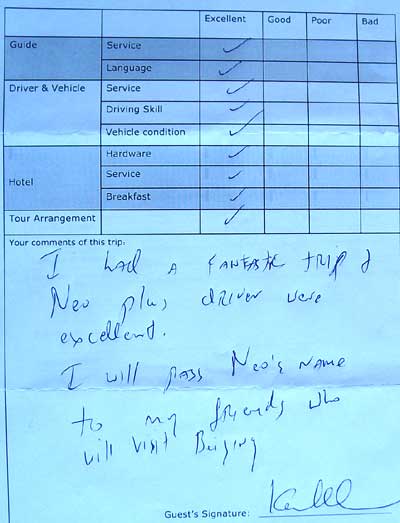 Excellent Good Poor Bad
Guide Service ✓
Language ✓
Driver & Vehicle Service ✓
Driving Skill ✓
Vehicle condition ✓
Hotel Hardware ✓
Service ✓
Breakfast ✓
Tour Arrangement ✓
Your comments of this trip:
I had a FANTASTIC TRIP &
Neo plus driver were
excellent.
I will pass Neo's name
to my friends who
will visit Beijing
Guest's Signature: